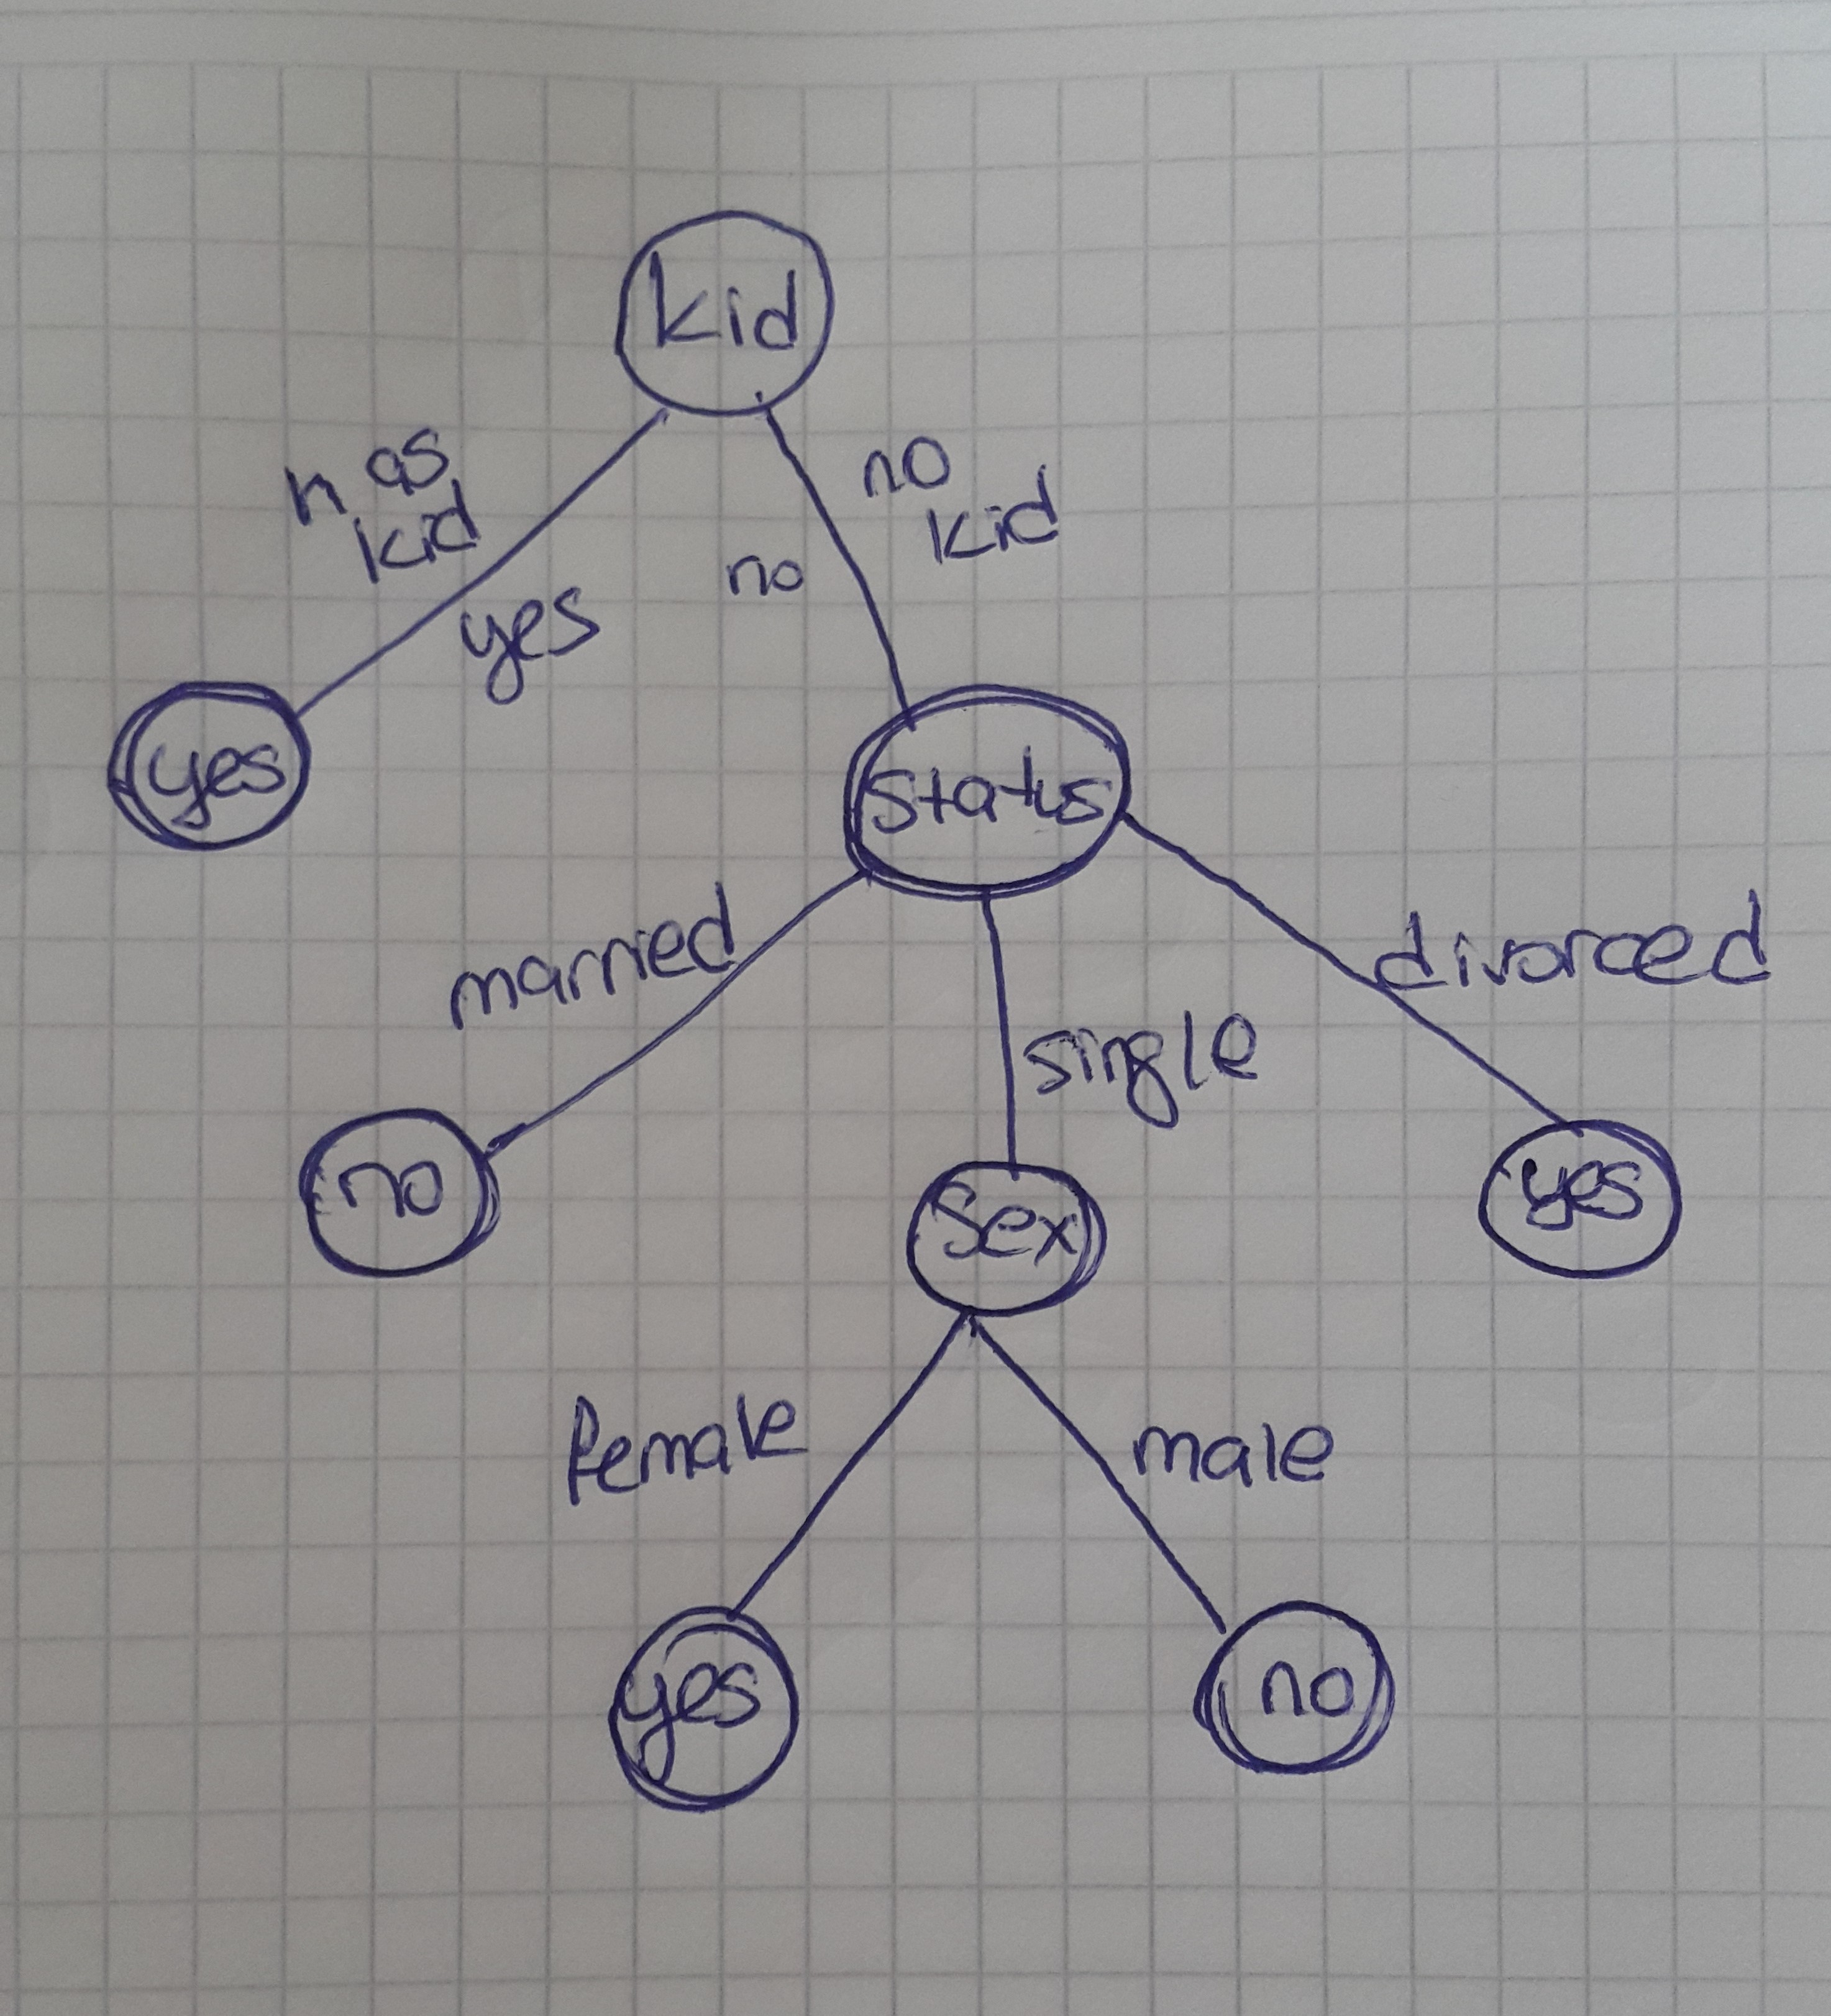 kid
has
kid
no
kid
yes
no
yes
status
married
single
divorced
no
sex
yes
Female
male
yes
no